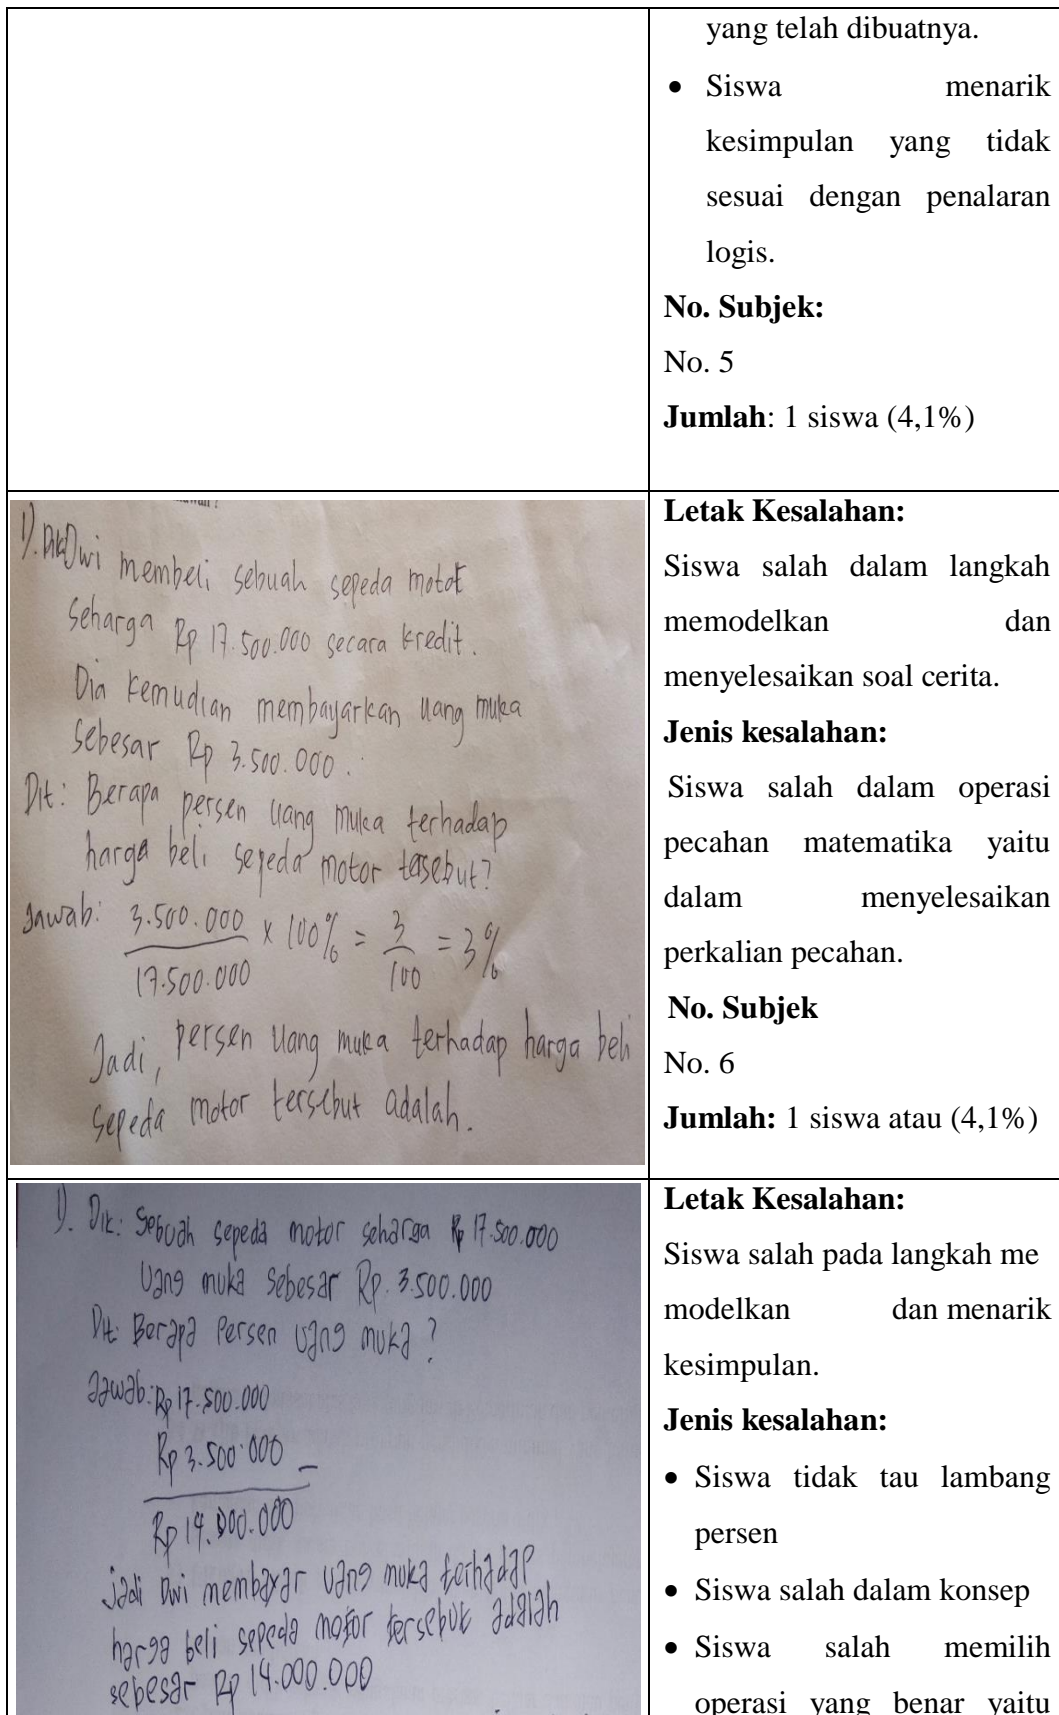 yang telah dibuatnya.
• Siswa menarik
kesimpulan yang tidak
sesuai dengan penalaran
logis.
No. Subjek:
No. 5
Jumlah: 1 siswa (4,1%)
1). Dik Dwi membeli sebuah sepeda motor
seharga Rp 17.500.000 secara kredit.
Dia kemudian membayarkan uang muka
sebesar Rp 3.500.000.
Dit: Berapa persen uang muka terhadap
harga beli sepeda motor tersebut?
Jawab: 3.500.000 / 17.500.000 x 100% = 3 / 100 = 3%
Jadi, persen uang muka terhadap harga beli
sepeda motor tersebut adalah.
Letak Kesalahan:
Siswa salah dalam langkah
memodelkan dan
menyelesaikan soal cerita.
Jenis kesalahan:
Siswa salah dalam operasi
pecahan matematika yaitu
dalam menyelesaikan
perkalian pecahan.
No. Subjek
No. 6
Jumlah: 1 siswa atau (4,1%)
1). Dik: Sebuah sepeda motor seharga Rp 17.500.000
Uang muka sebesar Rp. 3.500.000
Dit: Berapa Persen uang muka?
Jawab: Rp 17.500.000
Rp 3.500.000 –
Rp 14.000.000
jadi Dwi membayar uang muka terhadap
harga beli sepeda motor tersebut adalah
sebesar Rp 14.000.000
Letak Kesalahan:
Siswa salah pada langkah me
modelkan dan menarik
kesimpulan.
Jenis kesalahan:
• Siswa tidak tau lambang
persen
• Siswa salah dalam konsep
• Siswa salah memilih
operasi yang benar yaitu